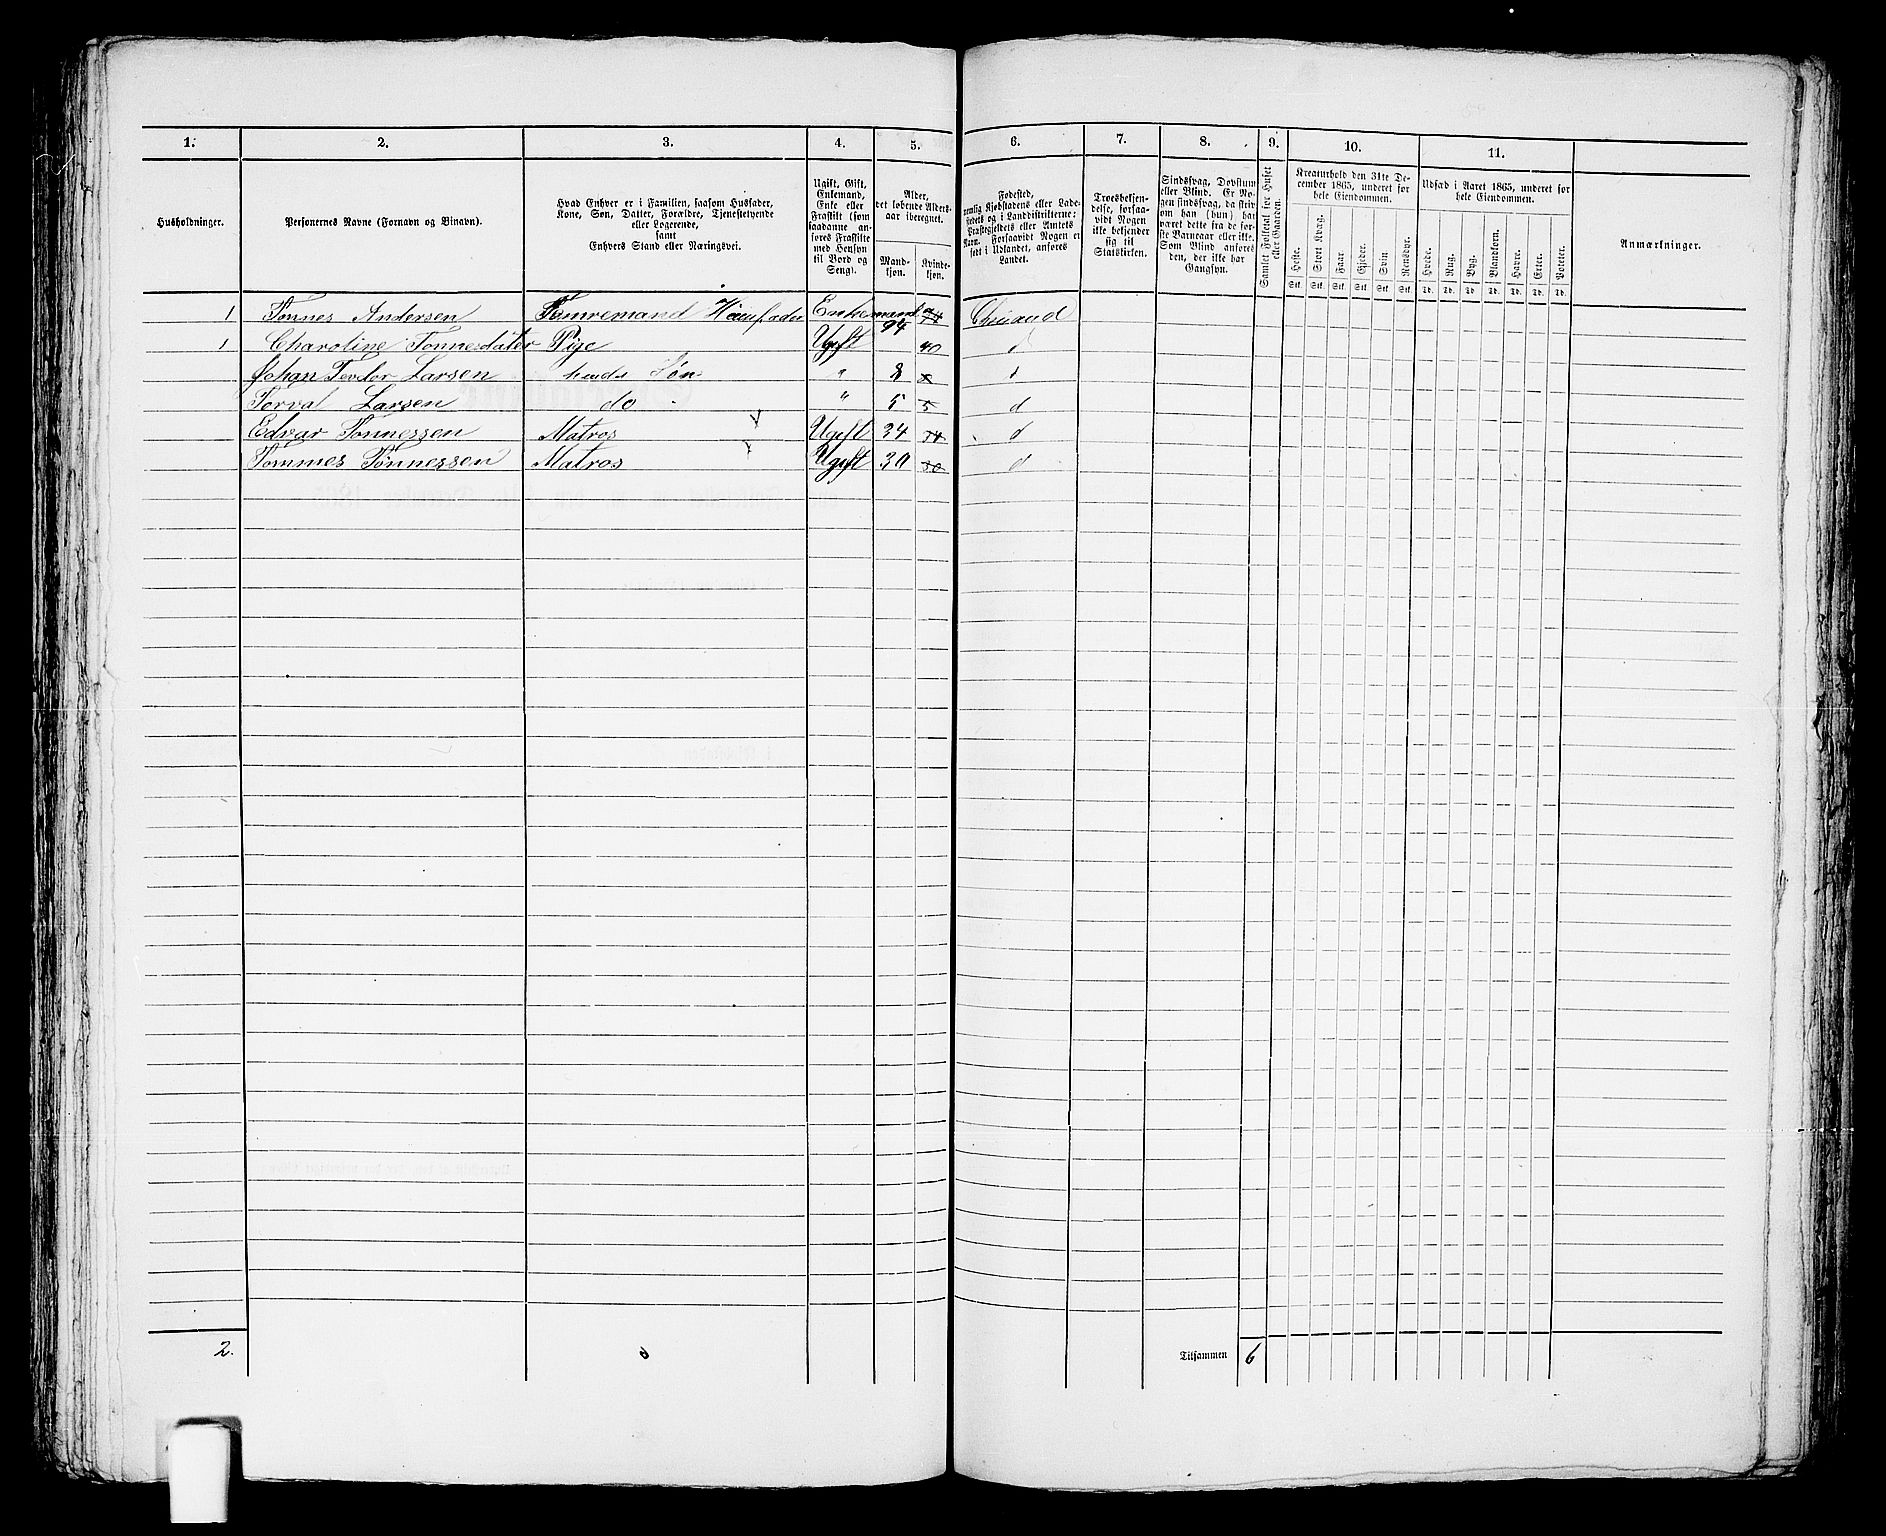 1. 2. 3. 4. 5. 6. 7. 8. 9. 10. 11.
Husholdninger.
Personernes Navne (Fornavn og Binavn).
Hvad Enhver er i Familien, saasom Husfader,
Kone, Søn, Datter, Forældre, Tjenestetyende
eller Logerende,
samt
Enhvers Stand eller Næringsvei.
Ugift, Gift,
Enkemand,
Enke eller
Fraskilt (som
saadanne an-
føres Fraskilte
med Hensyn
til Bord og
Seng).
Alder,
det løbende Alders-
aar iberegnet.
Mand-
kjøn.
Kvinde-
kjøn.
Fødested,
nemlig Kjøbstadens eller Lade-
stedets og i Landdistrikterne:
Præstegjeldets eller Amtets
Navn. Forsaavidt Nogen er
født i Udlandet, anføres
Landet.
Troesbekjen-
delse, forsaa-
vidt Nogen
ikke bekjender
sig til
Statskirken.
Sindssvag, Døvstum
eller Blind. Er No-
gen sindssvag, da skriv
om han (hun) har
været dette fra de før-
ste Barneaar eller ikke.
Som Blind anføres
den, der ikke har
Gangsyn.
Samlet Folketal for Huset
eller Gaarden.
Kreaturhold den 31te De-
cember 1865, underet for
hele Eiendommen.
Heste. Stort Kvæg. Faar. Gjeder. Svin. Rensdyr.
Stk. Stk. Stk. Stk. Stk. Stk.
Udsæd i Aaret 1865, underet for
hele Eiendommen.
Hvede. Rug. Byg. Blandkorn. Havre. Erter. Poteter.
Td. Td. Td. Td. Td. Td. Td.
Anmærkninger.
1 Tønnes Andersen Tømremand Huusfader Enkemand 74
1 Charoline Tønnesdater Pige Ugift 40 d
Johan Teodor Larsen hendes Søn " 8 8 d
Torval Larsen do " 5 5 d
Edvar Tønnessen Matros Ugift 34 34 d
Tommes Tønnessen Matros Ugift 30 30 d
2. Tilsammen 6